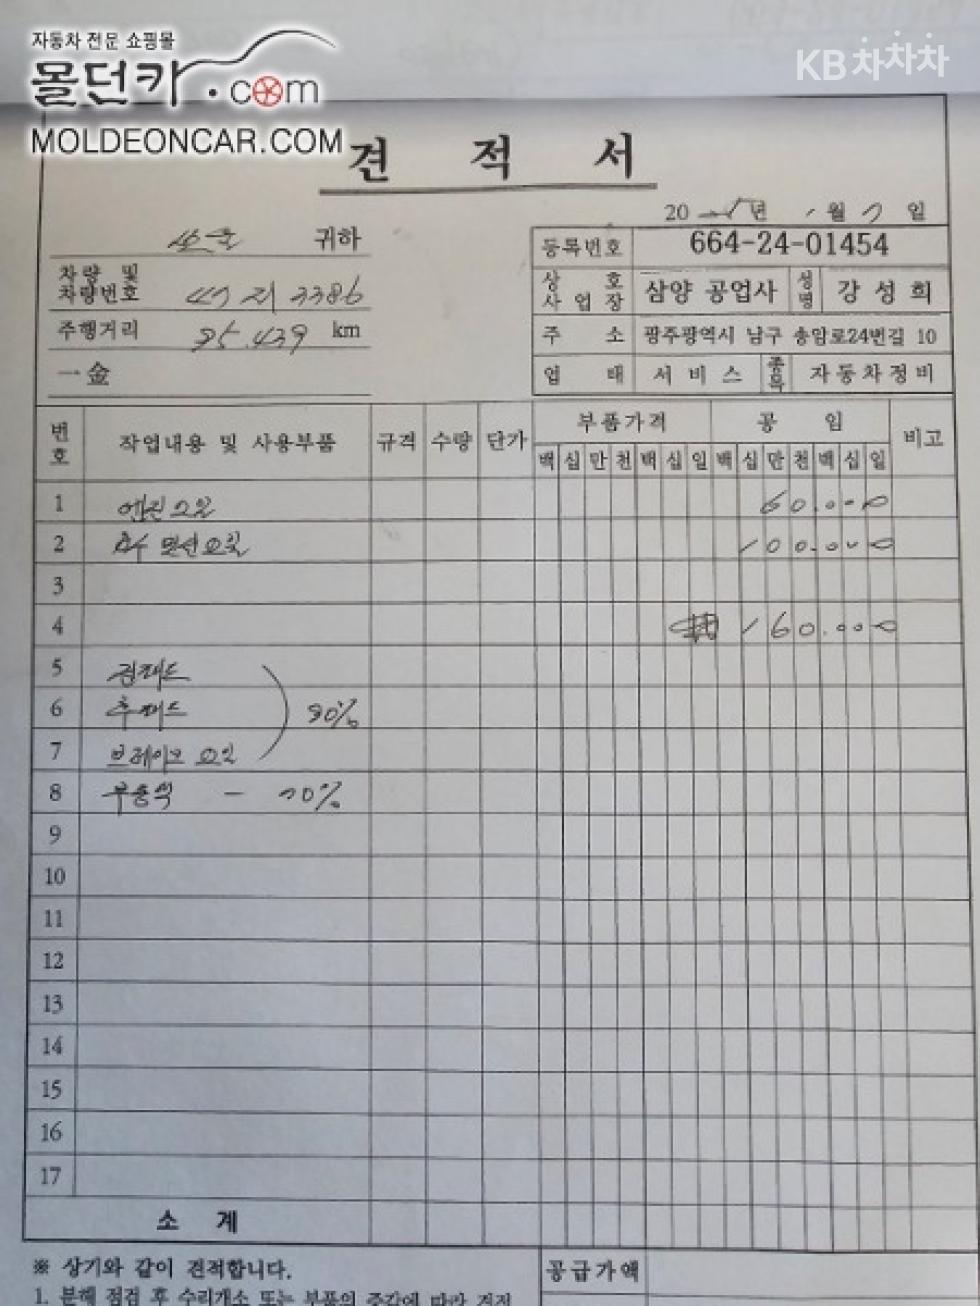 자동차 전문 쇼핑몰
몰던카.com
MOLDEONCAR.COM
KB차차차
견 적 서
20 년 월 일
귀하
등록번호 664-24-01454
차량 및
차량번호 3386
상 호
사 업 장 삼양 공업사 성명 강성희
주행거리 km
주 소 광주광역시 남구 송암로24번길 10
一金
업 태 서비스 종목 자동차정비
번호 작업내용 및 사용부품 규격 수량 단가 부품가격 공 임 비고
백 십 만 천 백 십 일 백 십 만 천 백 십 일
1 엔진오일 60.000
2 미션오일 100.000
3
4 160.000
5
6 90%
7 브레이크 오일
8 부동액 -
9
10
11
12
13
14
15
16
17
소 계
※ 상기와 같이 견적합니다.
공급가액
1. 분해 점검 후 수리개소 또는 부품의 증감에 따라 견적